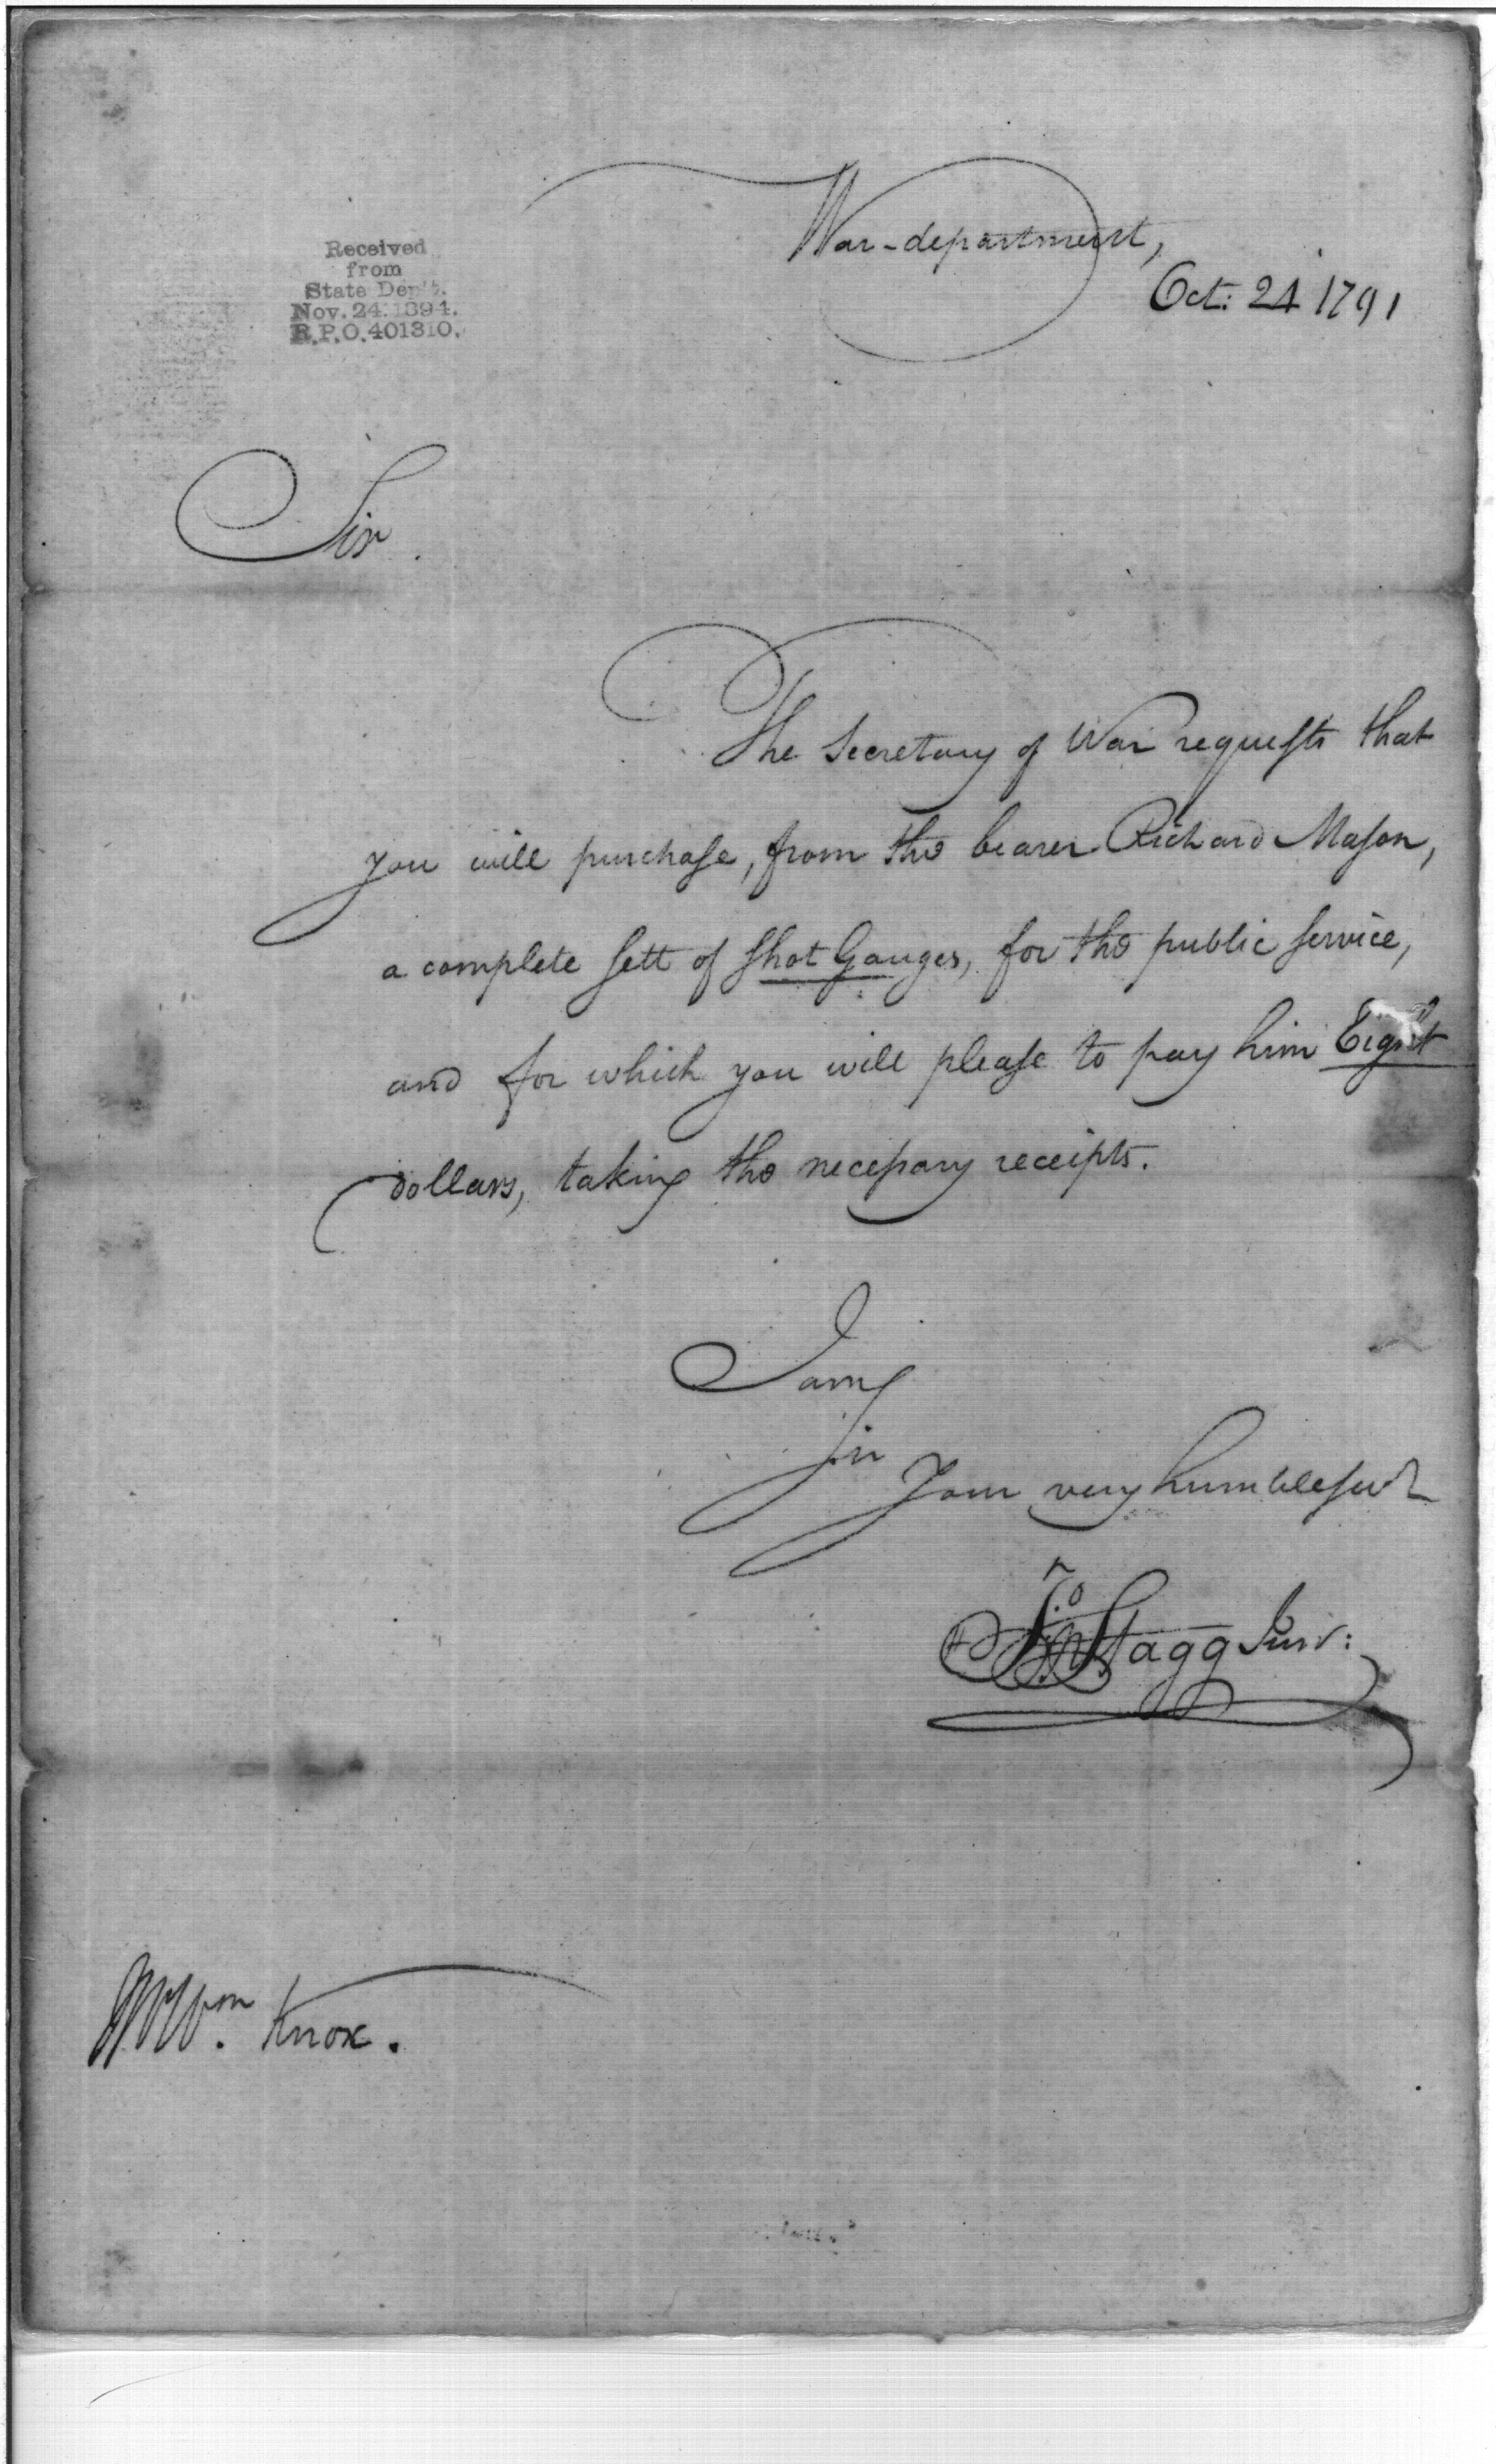 War-department,
Oct: 24 1791
Received
from
State Dep't.
Nov. 24. 1894.
R.P.O. 401310.
Sir
The Secretary of War requests that
you will purchase, from the bearer Richard Mason,
a complete sett of shot Gauges, for the public service,
and for which you will please to pay him Eight
dollars, taking the necessary receipts.
I am
Sir
Your very humble servt
Jno Stagg Junr:
Mr Wm. Knox.